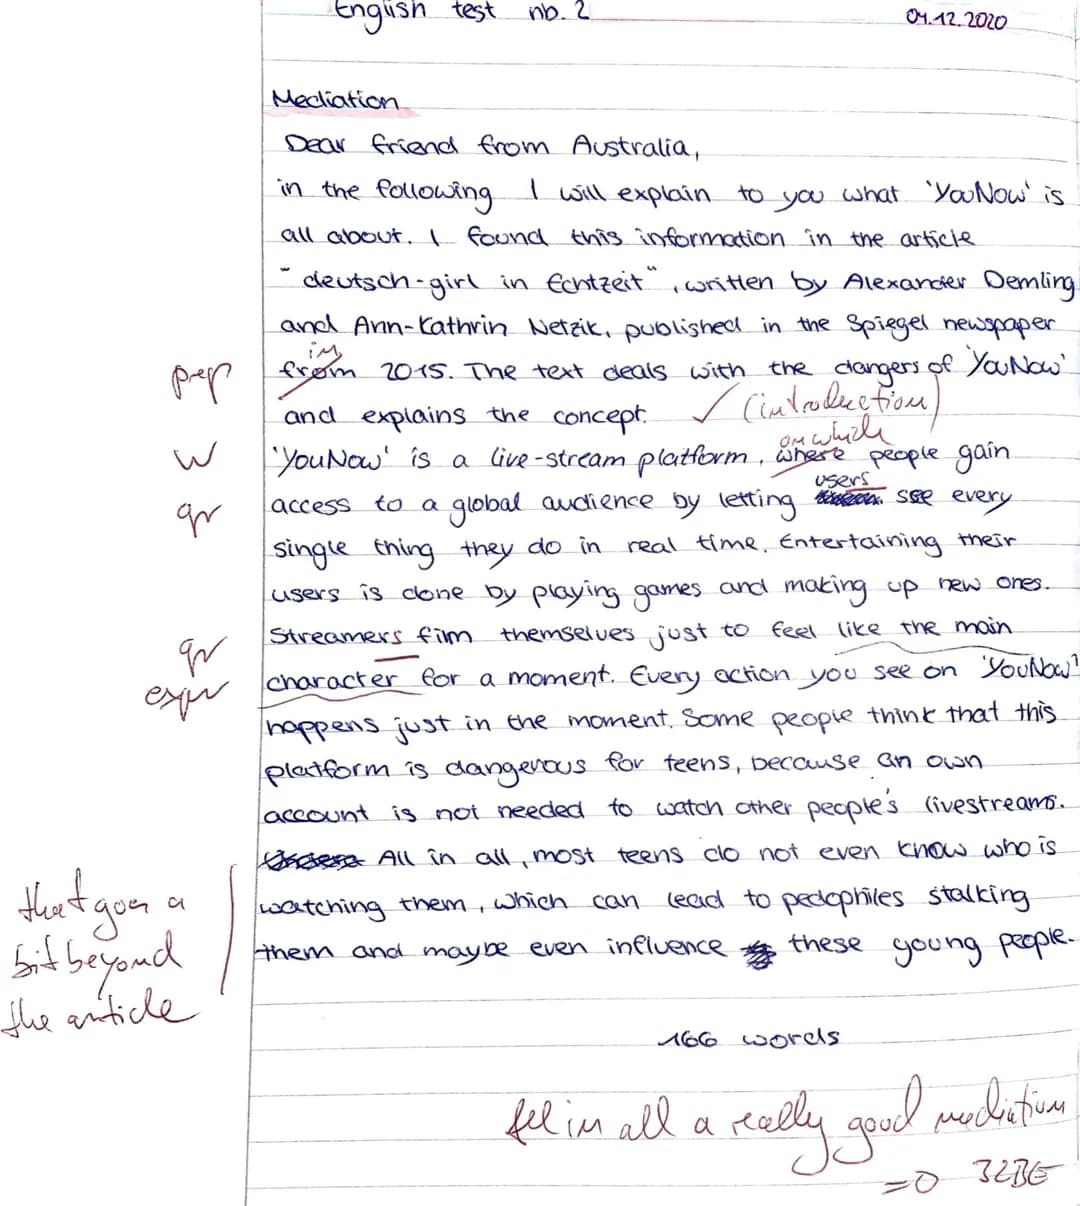 English test nb. 2 04.12.2020
Mediation
Dear friend from Australia,
in the following I will explain to you what 'YouNow' is
all about. I found this information in the article
"deutsch-girl in Echtzeit", written by Alexander Demling
and Ann-Kathrin Netzik, published in the Spiegel newspaper
in
prep from 2015. The text deals with the dangers of 'YouNow'
and explains the concept. ✓ (introduction)
on which
W 'YouNow' is a live-stream platform, where people gain
users
gr access to a global audience by letting see every
single thing they do in real time. Entertaining their
users is done by playing games and making up new ones.
gr Streamers film themselves just to feel like the main
expr character for a moment. Every action you see on 'YouNow'
happens just in the moment. Some people think that this
platform is dangerous for teens, because an own
account is not needed to watch other people's livestreams.
All in all, most teens do not even know who is
that goes a watching them, which can lead to pedophiles stalking
bit beyond them and maybe even influence these young people.
the article
166 words
All in all a really good mediation
=> 32BE